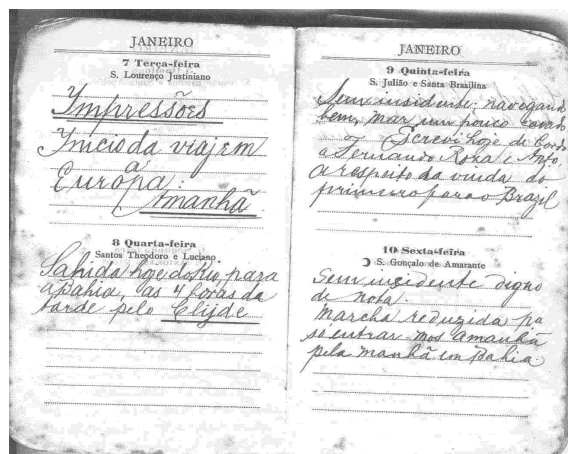 JANEIRO
7 Terça-feira
S. Lourenço Justiniano
Impressões
Inicio da viajem
a
Europa:
Amanhã
8 Quarta-feira
Santos Theodoro e Luciano.
Sahida hoje do Rio, para
a Bahia, as 4 horas da
tarde pelo Clijde
JANEIRO
9 Quinta-feira
S. Julião e Santa Brasilina
Sem insidente: navegando
bem, mar um pouco cavado
Escrevi hoje de bordo
a Fernando Roxa e Anto,
a respeito da vinda do
primeiro para o Brazil
10 Sexta-feira
S. Gonçalo de Amarante
Sem insidente digno
de nota.
Marcha reduzida pa
só entrar-mos amanhã
pela manhã em Bahia.